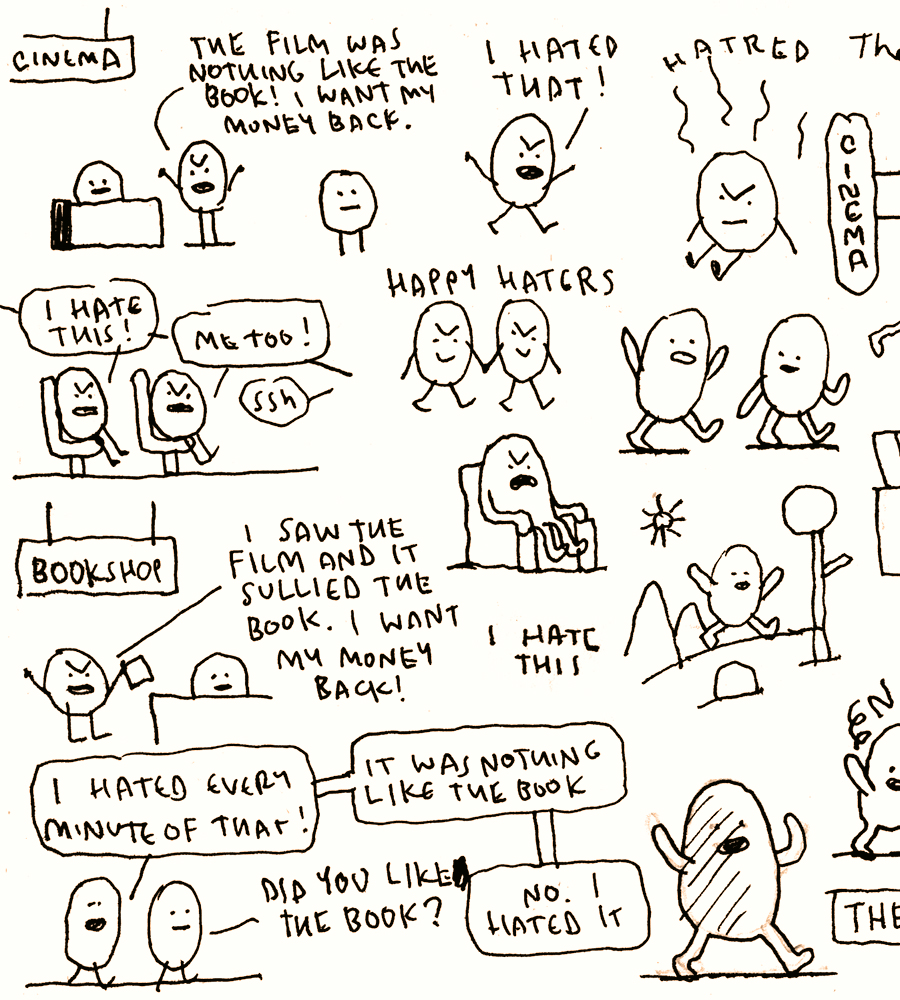 CINEMA
THE FILM WAS
NOTHING LIKE THE
BOOK! I WANT MY
MONEY BACK.
I HATED
THAT!
HATRED
The
CINEMA
I HATE
THIS!
ME TOO!
SSh
HAPPY HATERS
BOOKSHOP
I SAW THE
FILM AND IT
SULLIED THE
BOOK. I WANT
MY MONEY
BACK!
I HATE
THIS
I HATED EVERY
MINUTE OF THAT!
IT WAS NOTHING
LIKE THE BOOK
DID YOU LIKE
THE BOOK?
NO. I
HATED IT
THE